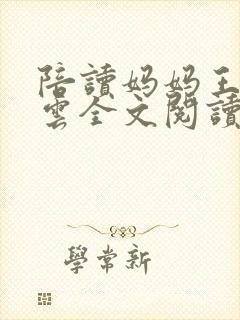 陪讀妈妈王
雲全文閱讀
學常新